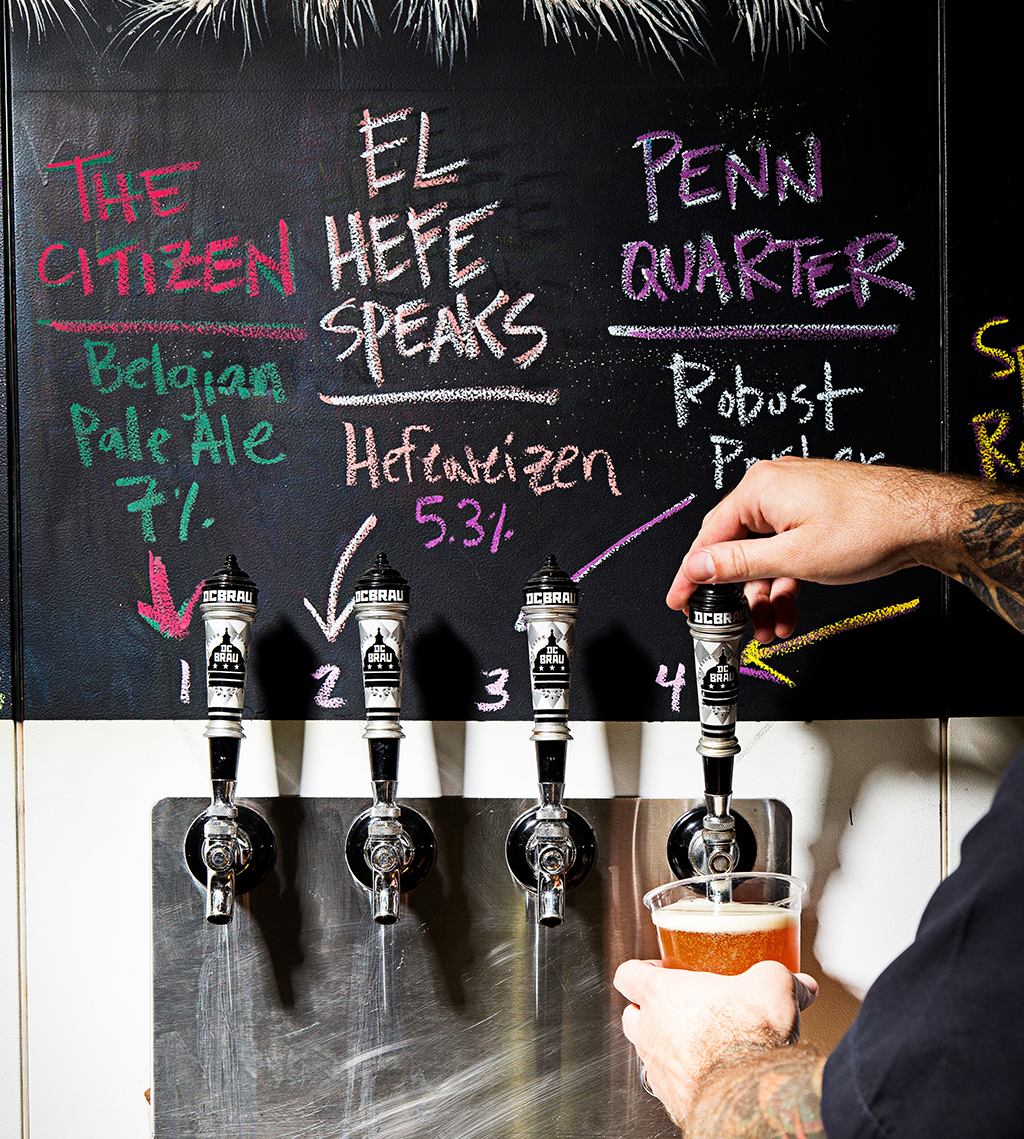 THE
CITIZEN
Belgian
Pale Ale
7%
EL
HEFE
SPEAKS
Hefeweizen
5.3%
PENN
QUARTER
Robust
1
2
3
4
DC BRAU
DC BRAU
DC BRAU
DC BRAU
DC
BRAU
DC
BRAU
DC
BRAU
DC
BRAU